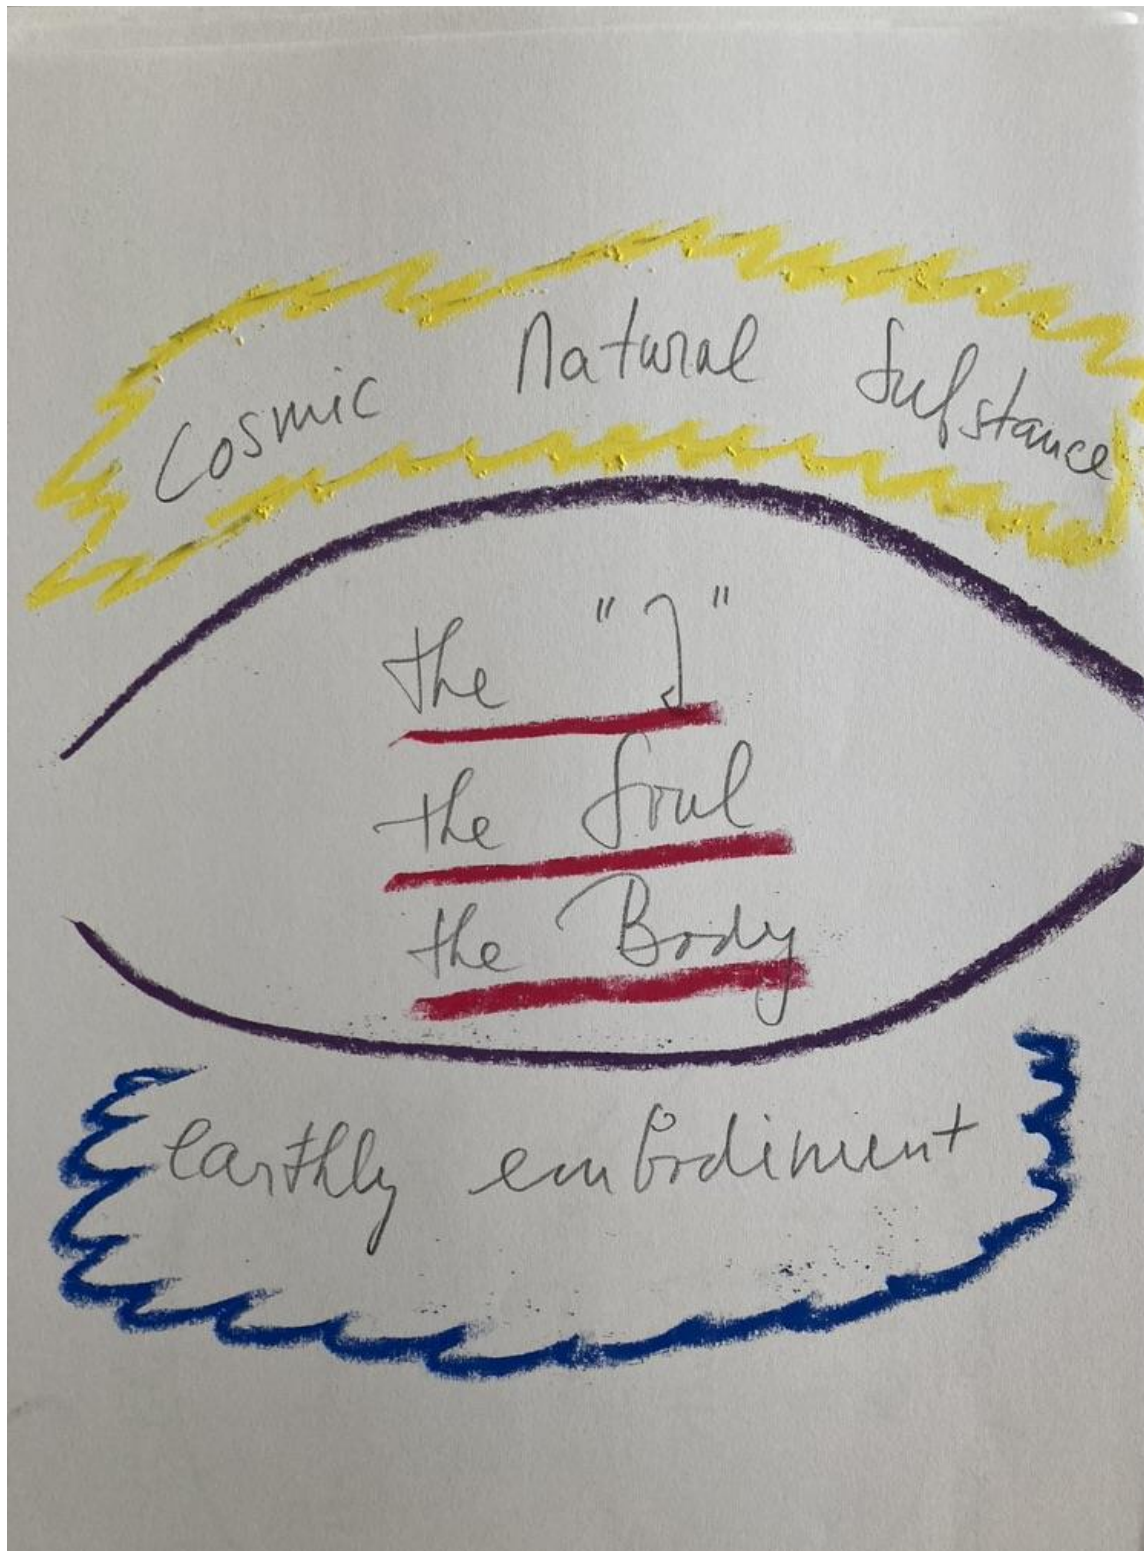 Cosmic Natural Substance
the "I"
the Soul
the Body
earthly embodiment